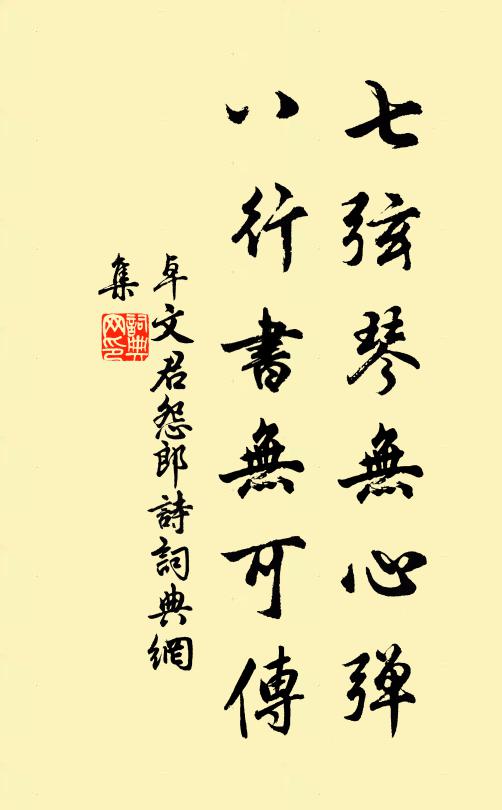 七弦琴無心弹
八行書無可傳
卓文君怨郎詩詞典網
集
詞典網印